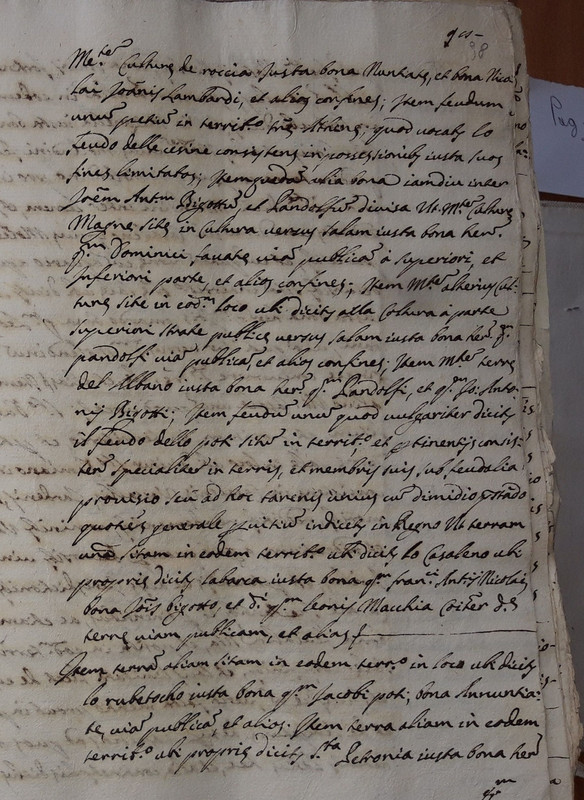 98
Me.te Culture de roccia iusta bona Nuntate, et bona Nico
lai Joannis Lambardi, et alios confines; Item feudum
unu petiu in territ.o tre Athene; quod vocat lo
feudo delle cesine consistens in possessionib iusta suos
fines limitatos; Item queda alia bona iamdiu inter
Joem Antm Bigottu, et Pandolfu divisa Ut M.te Culture
Magne site in Cultura versus salam iusta bona her.
q.m Dominici favate, via publica à superiori, et
Inferiori parte, et alios confines; Item M.te alterius Cul-
ture site in eod.m loco ubi dicit alla Coltura à parte
superiori strate publice versus salam iusta bona her. q.
pandolfi via publica, et alios confines; Item M.te terre
del Albano iusta bona her. q.m Pandolfi, et q.m Jo: Anto
nij Bigotti; Item feudu unu quod vulgariter dicit
il feudo dello poti situ in territ.o et ptinentijs consis-
tens specialiter in terris, et membris suis, sub feudali
servitio seu ad hoc tarenis unius cu dimidio
quoties generale servitiu indicit in Regno Ut terram
una sitam in eodem territ.o ubi dicit lo Casaleno ubi
proprie dicit labarca iusta bona q.m Fran.i Antij Nicolai
bona Jois Bigotto, et q.m leonis Macchia
terre viam publicam, et alios
Item terra aliam sitam in eodem terr.o in loco ubi dicit
lo rubetocho iusta bona q.m Jacobi poti; bona Annuntia-
te, via publica, et alios: Item terra aliam in eodem
territ.o ubi proprie dicit S.ta Petronia iusta bona her
q.m
Pag.